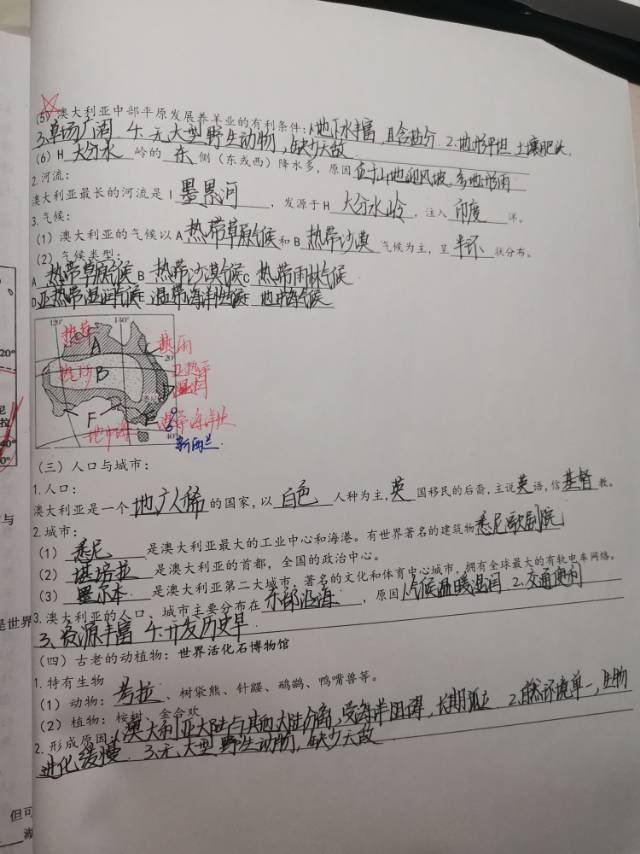 (5) 澳大利亚中部平原发展养羊业的有利条件: 1.地下水丰富,且含盐分 2.地形平坦,土壤肥沃,
3.草场广阔 4.无大型野生动物,缺少天敌
(6) H 大分水 岭的 东 侧 (东或西) 降水多, 原因 位于山地迎风坡,多地形雨
2.河流:
澳大利亚最长的河流是 I 墨累河 , 发源于 H 大分水岭 , 注入 印度 洋。
3.气候:
(1) 澳大利亚的气候以 A 热带草原气候 和 B 热带沙漠 气候为主, 呈 半环 状分布。
(2) 气候类型:
A 热带草原气候 B 热带沙漠气候 C 热带雨林气候
D 亚热带湿润气候 E 温带海洋性气候 F 地中海气候
120° 140°
热草 A C 热雨
20°
热沙 B D 亚热季
湿润
F E 温带海洋性
地中海 40°
新西兰
(三) 人口与城市:
1.人口:
澳大利亚是一个 地广人稀 的国家, 以 白色 人种为主, 英 国移民的后裔, 主说 英 语, 信 基督 教。
2.城市:
(1) 悉尼 是澳大利亚最大的工业中心和海港。有世界著名的建筑物 悉尼歌剧院
(2) 堪培拉 是澳大利亚的首都, 全国的政治中心。
(3) 墨尔本 是澳大利亚第二大城市, 著名的文化和体育中心城市, 拥有全球最大的有轨电车网络。
3.澳大利亚的人口、城市主要分布在 东部沿海 , 原因 1.气候温暖湿润 2.交通便利
3.资源丰富 4.开发历史早
(四) 古老的动植物: 世界活化石博物馆
1.特有生物
(1) 动物: 考拉 、树袋熊、针鼹、鸸鹋、鸭嘴兽等。
(2) 植物: 桉树、金合欢
2.形成原因: 1.澳大利亚大陆与其他大陆分离,受海洋阻碍,长期孤立 2.自然环境单一,生物
进化缓慢 3.无大型野生动物,缺少天敌
20°
与
是世界
但可